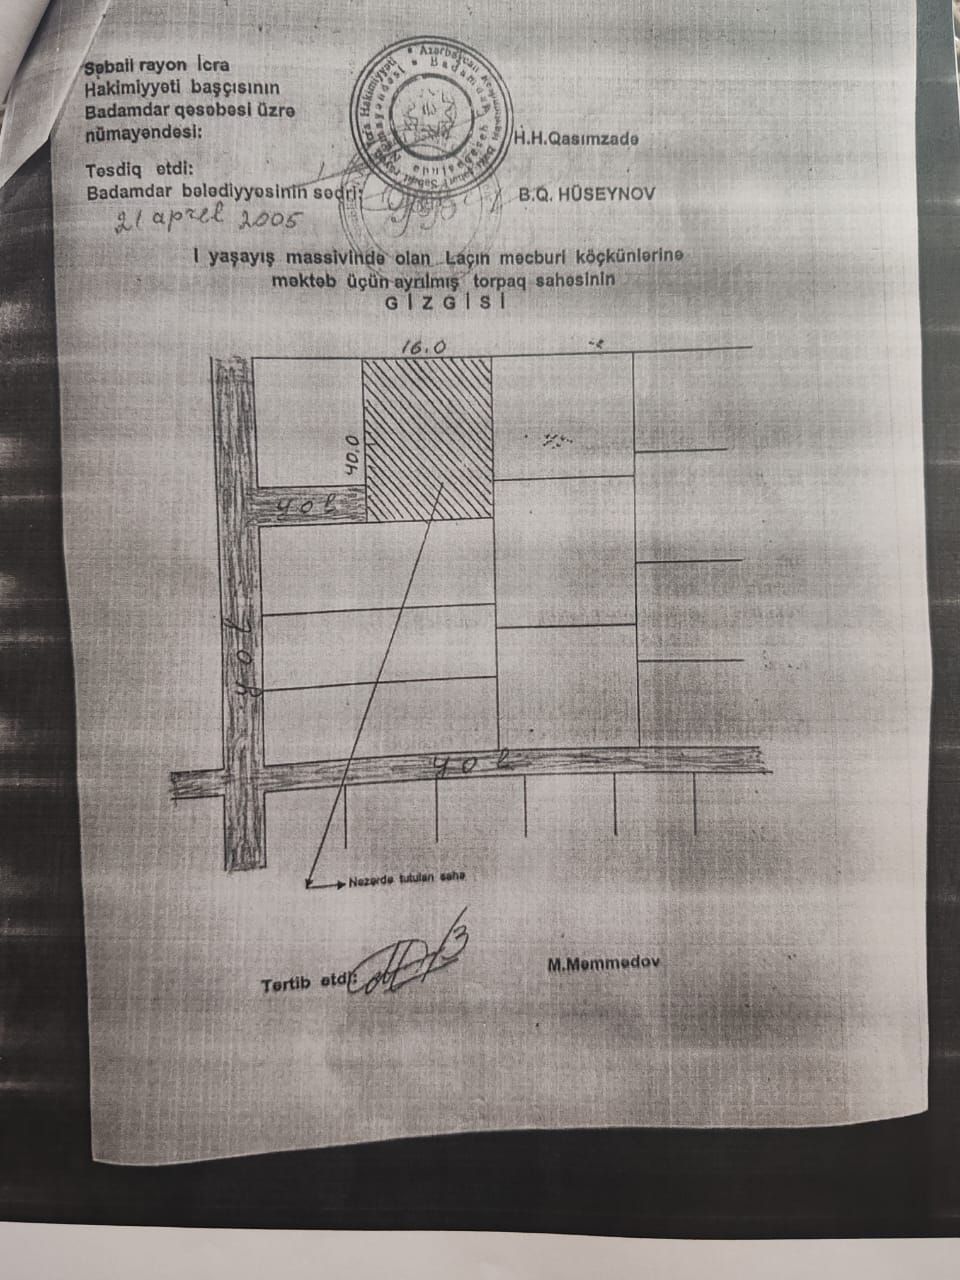 Səbail rayon İcra
Hakimiyyəti başçısının
Badamdar qəsəbəsi üzrə
nümayəndəsi:
H.H.Qasımzadə
Təsdiq etdi:
Badamdar bələdiyyəsinin sədri:
B.Q. HÜSEYNOV
21 aprel 2005
I yaşayış massivində olan Laçın məcburi köçkünlərinə
məktəb üçün ayrılmış torpaq sahəsinin
GİZGİSİ
16.0
40.0
yol
yol
yol
Nəzərdə tutulan sahə
Tərtib etdi:
M.Məmmədov